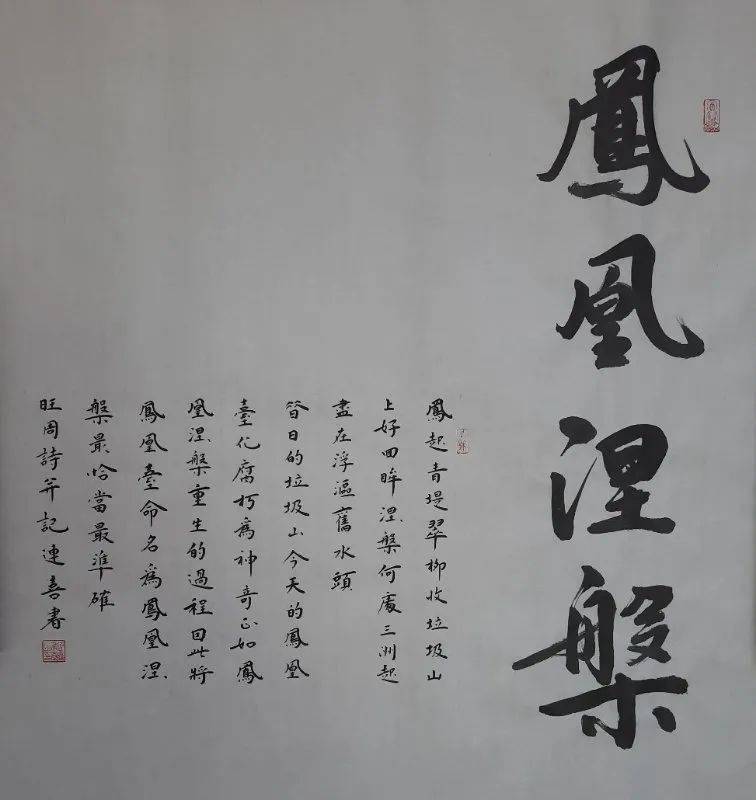 鳳凰涅槃
鳳起青堤翠柳收垃圾山
上好回眸涅槃何處三洲起
盡在浮漚舊水頭
昔日的垃圾山今天的鳳凰
臺化腐朽爲神奇正如鳳
凰涅槃重生的過程因此將
鳳凰臺命名爲鳳凰涅
槃最恰當最準確
旺周詩并記連喜書